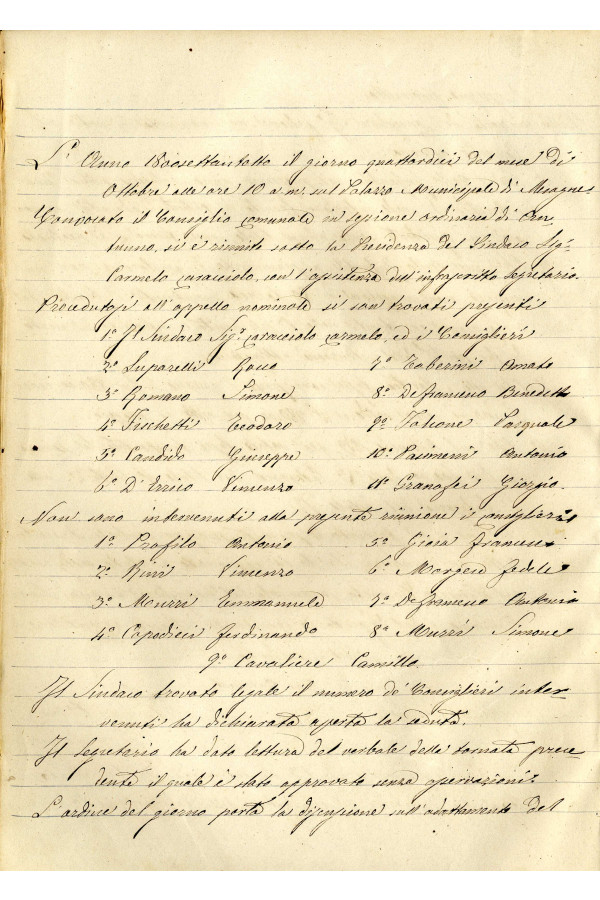 L'Anno 1800settantotto il giorno quattordici del mese di
Ottobre alle ore 10 a.m. sul Palazzo Municipale di Mesagne
Convocato il Consiglio comunale in sessione ordinaria di Au-
tunno, si è riunito sotto la Presidenza del Sindaco Sig.r
Carmelo Caracciolo, con l'assistenza dell'infrascritto Segretario.
Procedutosi all'appello nominale si son trovati presenti
1º Il Sindaco Sig.r Caracciolo Carmelo, ed i Consiglieri
2º Luparelli Rocco 7º Taberini Amato
3º Romano Simone 8º Defrancesco Benedetto
4º Fischetti Teodoro 9º Falcone Pasquale
5º Candido Giuseppe 10º Pasimeni Antonio
6º D'Errico Vincenzo 11º Granafei Giorgio.
Non sono intervenuti alla presente riunione i consiglieri
1º Profilo Antonio 5º Gioia Francesco
2º Rini Vincenzo 6º Morgese Fedele
3º Murri Emmanuele 7º Defrancesco Antonio
4º Capodieci Ferdinando 8º Murri Simone
9º Cavaliere Camillo.
Il Sindaco trovato legale il numero de' Consiglieri inter-
venuti ha dichiarata aperta la seduta.
Il Segretario ha dato lettura del verbale della tornata prece-
dente il quale è stato approvato senza osservazioni.
L'ordine del giorno porta la discussione sull'adattamento del